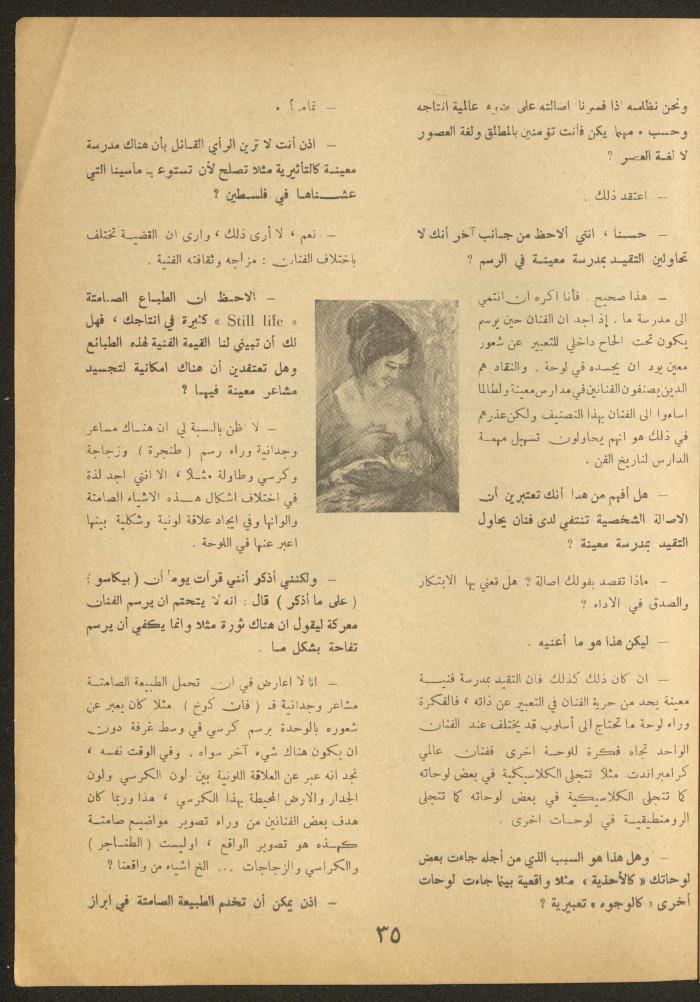 ونحن نظلمه اذا فسرنا اصالته على ضوء عالمية انتاجه
وحسب • مهما يكن فأنت تؤمنين بالمطلق ولغة العصور
لا لغة العصر ؟
— اعتقد ذلك .
— حسنا ، انني ألاحظ من جانب آخر أنك لا
تحاولين التقيد بمدرسة معينة في الرسم ؟
— هذا صحيح . فأنا اكره ان انتمي
الى مدرسة ما . إذ اجد ان الفنان حين يرسم
يكون تحت الحاح داخلي للتعبير عن شعور
معين يود ان يجسده في لوحة . والنقاد هم
الذين يصنفون الفنانين في مدارس معينة ولطالما
اساءوا الى الفنان بهذا التصنيف ولكن عذرهم
في ذلك هو انهم يحاولون تسهيل مهمة
الدارس لتاريخ الفن .
— هل أفهم من هذا أنك تعتبرين أن
الاصالة الشخصية تنتفي لدى فنان يحاول
التقيد بمدرسة معينة ؟
— ماذا تقصد بقولك اصالة ? هل تعني بها الابتكار
والصدق في الاداء ؟
— ليكن هذا هو ما أعنيه .
— ان كان ذلك كذلك فان التقيد بمدرسة فنية
معينة يحد من حرية الفنان في التعبير عن ذاته ، فالفكرة
وراء لوحة ما تحتاج الى أسلوب قد يختلف عند الفنان
الواحد تجاه فكرة للوحة اخرى ففنان عالمي
كرامبراندت مثلا تتجلى الكلاسيكية في بعض لوحاته
كما تتجلى الكلاسيكية في بعض لوحاته كما تتجلى
الرومنطيقية في لوحات اخرى .
— وهل هذا هو السبب الذي من أجله جاءت بعض
لوحاتك « كالأحذية » مثلا واقعية بينما جاءت لوحات
أخرى « كالوجوه » تعبيرية ?
— تماماً •
— اذن أنت لا ترين الرأي القائل بأن هناك مدرسة
معينة كالتأثيرية مثلا تصلح لأن تستوعب مآسينا التي
عشناها في فلسطين ؟
— نعم ، لا أرى ذلك ، وارى ان القضية تختلف
باختلاف الفنان : مزاجه وثقافته الفنية .
— الاحظ ان الطباع الصامتة
« Still life » كثيرة في انتاجك ، فهل
لك أن تبيني لنا القيمة الفنية لهذه الطبائع
وهل تعتقدين أن هناك امكانية لتجسيد
مشاعر معينة فيها ؟
— لا اظن بالنسبة لي ان هناك مساعر
وجدانية وراء رسم ( طنجرة ) وزجاجة
وكرسي وطاولة مثلا ، الا انني اجد لذة
في اختلاف اشكال هذه الاشياء الصامتة
والوانها وفي ايجاد علاقة لونية وشكلية بينها
اعبر عنها في اللوحة .
— ولكنني أذكر أنني قرأت يوما أن ( بيكاسو ؛
( على ما أذكر ) قال : انه لا يتحتم ان يرسم الفنان
معركة ليقول ان هناك ثورة مثلا وانما يكفي أن يرسم
تفاحة بشكل ما .
— انا لا اعارض في ان تحمل الطبيعة الصامتة
مشاعر وجدانية فـ ( فان كوخ ) مثلا كان يعبر عن
شعوره بالوحدة برسم كرسي في وسط غرفة دون
ان يكون هناك شيء آخر سواه . وفي الوقت نفسه ،
نجد انه عبر عن العلاقة اللونية بين لون الكرسي ولون
الجدار والارض المحيطة بهذا الكرسي ، هذا وربما كان
هدف بعض الفنانين من وراء تصوير مواضيع صامتة
كهذه هو تصوير الواقع ، اوليست ( الطناجر )
والكراسي والزجاجات ... الخ اشياء من واقعنا ?
— اذن يمكن أن تخدم الطبيعة الصامتة في ابراز
٣٥